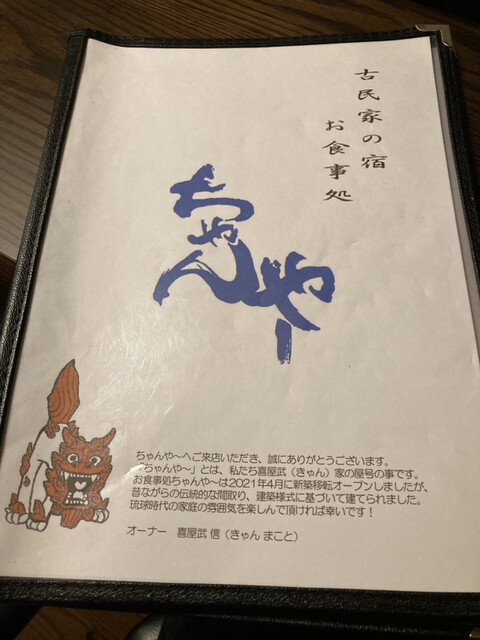 古民家の宿
お食事処
ちゃんやー
ちゃんや～へご来店いただき、誠にありがとうございます。
「ちゃんや～」とは、私たち喜屋武（きゃん）家の屋号の事です。
お食事処ちゃんや～は2021年4月に新築移転オープンしましたが、
昔ながらの伝統的な間取り、建築様式に基づいて建てられました。
琉球時代の家庭の雰囲気を楽しんで頂ければ幸いです！
オーナー　喜屋武 信（きゃん まこと）